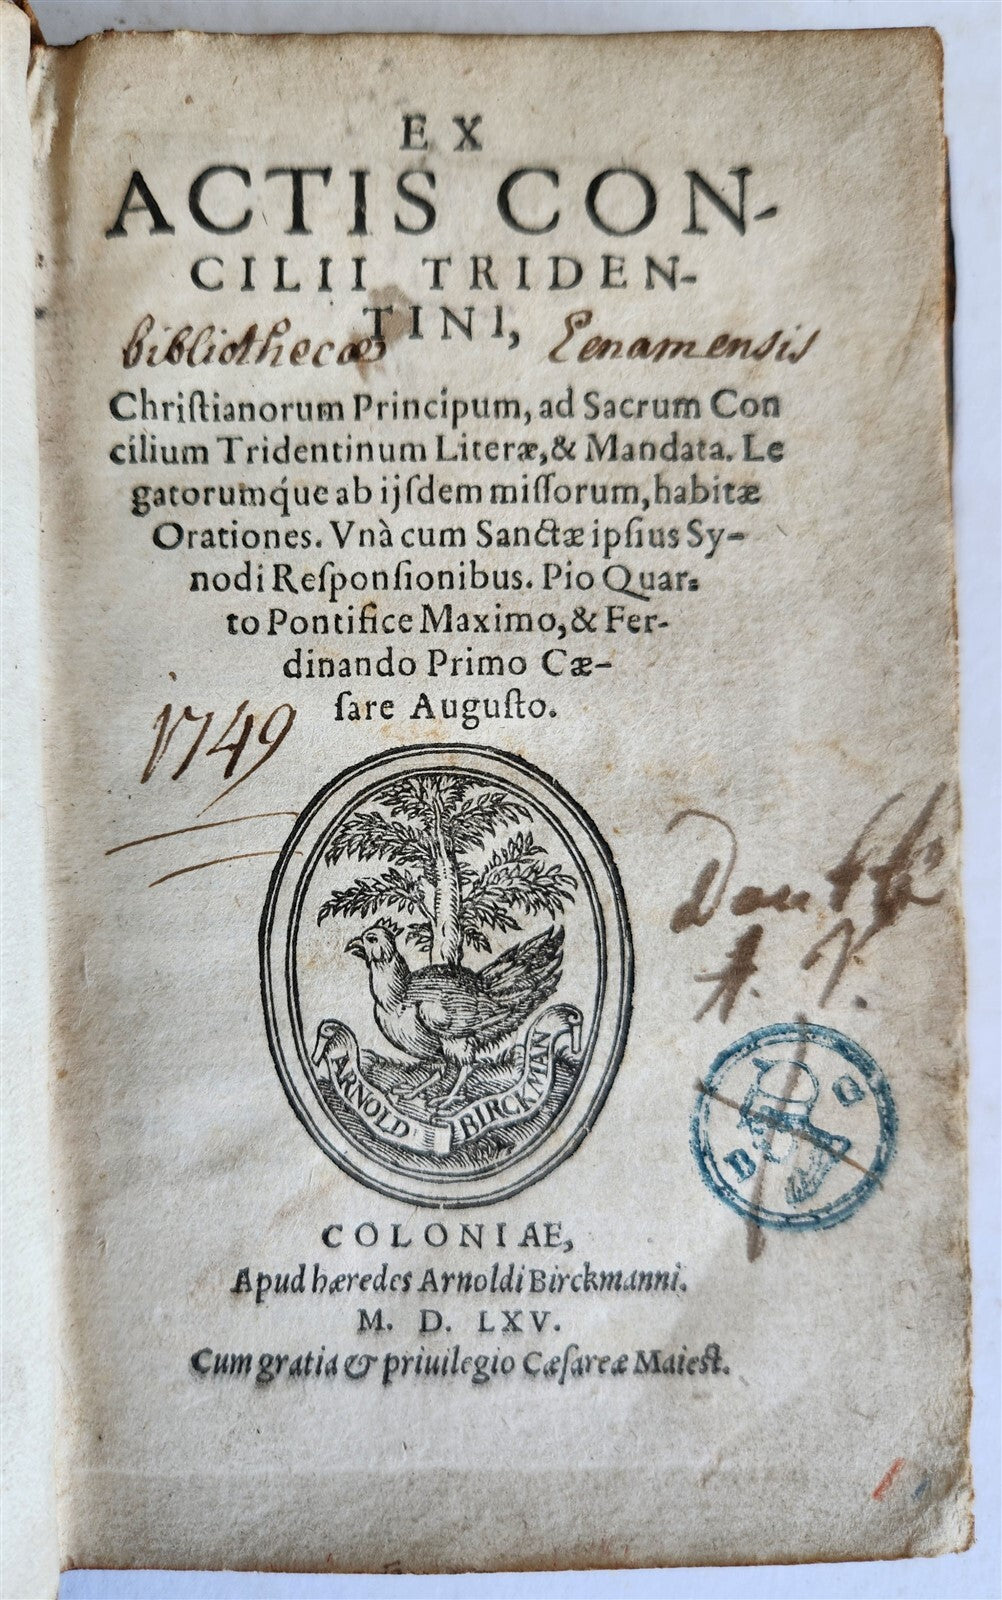 EX
ACTIS CON-
CILII TRIDEN-
TINI,
bibliothecæ Eenamensis
Chriſtianorum Principum, ad Sacrum Con
cilium Tridentinum Literæ, & Mandata. Le
gatorumq́ue ab ijſdem miſſorum, habitæ
Orationes. Vnà cum Sanctæ ipſius Sy-
nodi Reſponſionibus. Pio Quar-
to Pontifice Maximo, & Fer-
dinando Primo Cæ-
ſare Auguſto.
1749
ARNOLD BIRCKMAN
B G
COLONIAE,
Apud hæredes Arnoldi Birckmanni.
M. D. LXV.
Cum gratia & priuilegio Cæſareæ Maieſt.